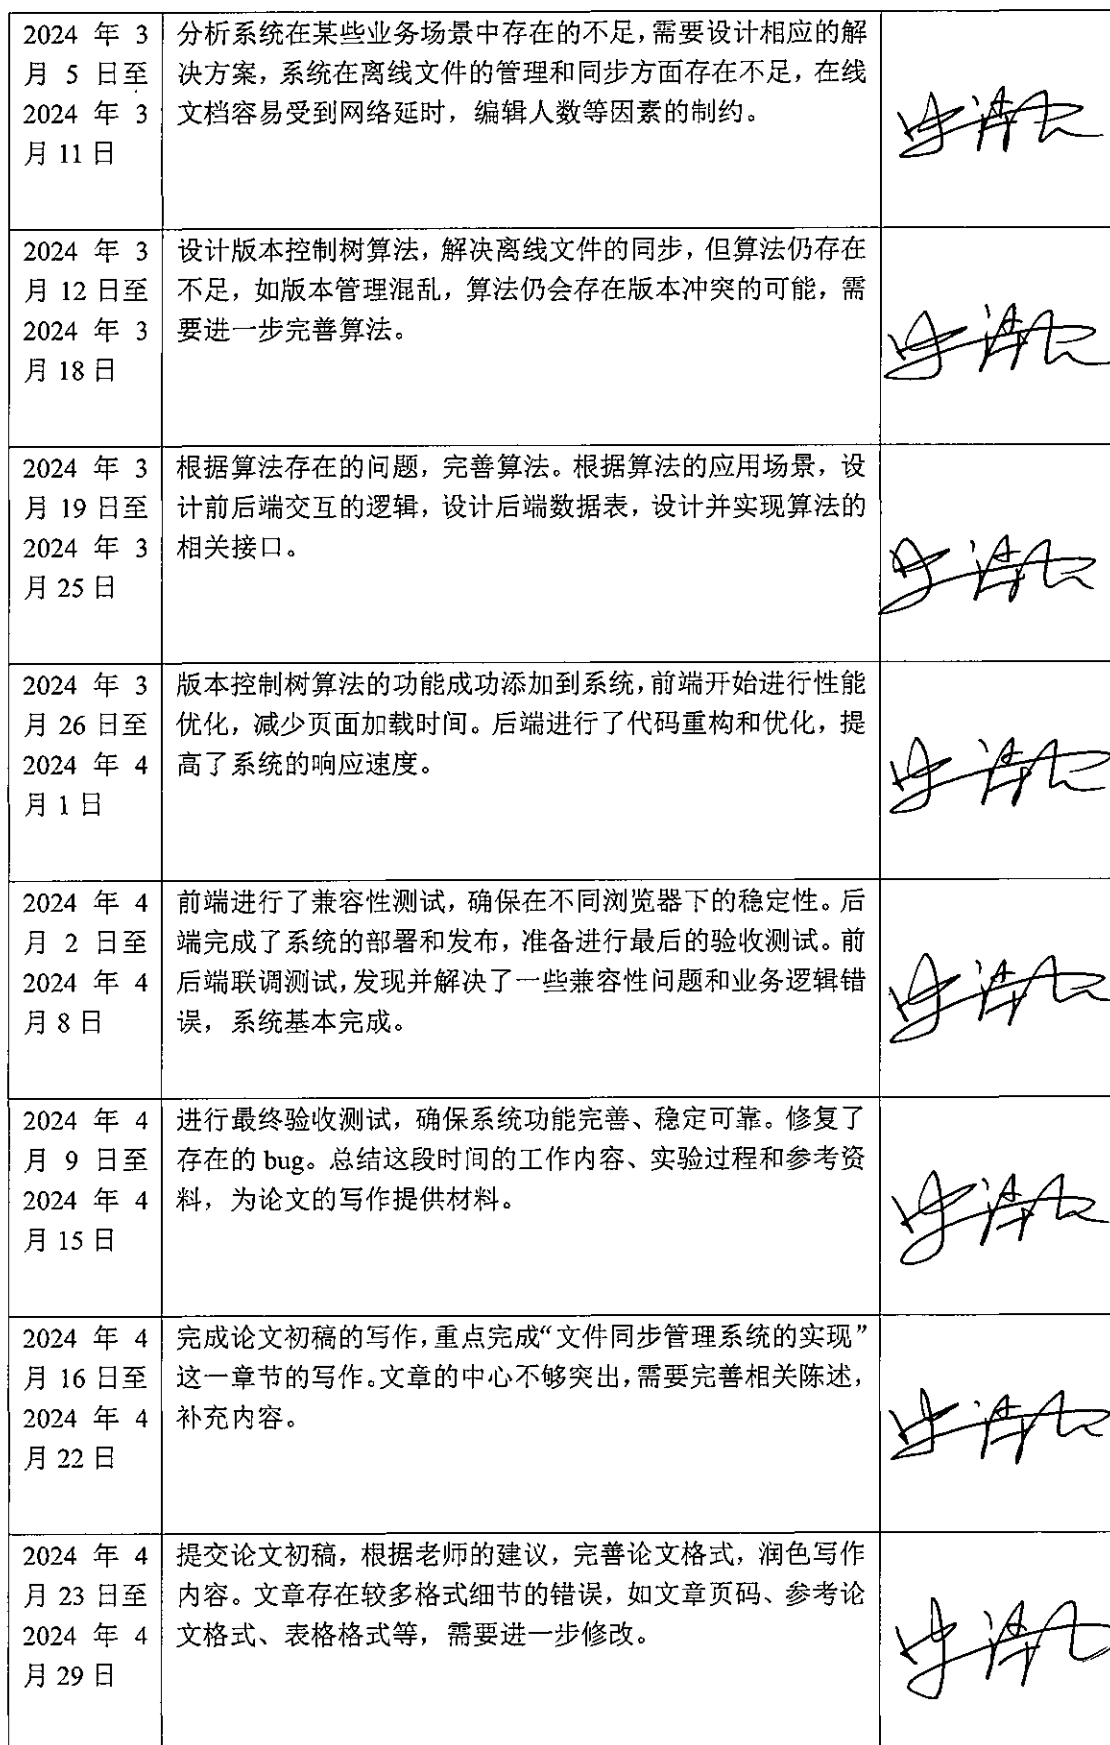 2024 年 3
月 5 日至
2024 年 3
月 11 日
分析系统在某些业务场景中存在的不足,需要设计相应的解
决方案，系统在离线文件的管理和同步方面存在不足，在线
文档容易受到网络延时，编辑人数等因素的制约。
2024 年 3
月 12 日至
2024 年 3
月 18 日
设计版本控制树算法，解决离线文件的同步，但算法仍存在
不足，如版本管理混乱，算法仍会存在版本冲突的可能，需
要进一步完善算法。
2024 年 3
月 19 日至
2024 年 3
月 25 日
根据算法存在的问题，完善算法。根据算法的应用场景，设
计前后端交互的逻辑，设计后端数据表，设计并实现算法的
相关接口。
2024 年 3
月 26 日至
2024 年 4
月 1 日
版本控制树算法的功能成功添加到系统,前端开始进行性能
优化，减少页面加载时间。后端进行了代码重构和优化，提
高了系统的响应速度。
2024 年 4
月 2 日至
2024 年 4
月 8 日
前端进行了兼容性测试，确保在不同浏览器下的稳定性。后
端完成了系统的部署和发布，准备进行最后的验收测试。前
后端联调测试,发现并解决了一些兼容性问题和业务逻辑错
误，系统基本完成。
2024 年 4
月 9 日至
2024 年 4
月 15 日
进行最终验收测试，确保系统功能完善、稳定可靠。修复了
存在的 bug。总结这段时间的工作内容、实验过程和参考资
料，为论文的写作提供材料。
2024 年 4
月 16 日至
2024 年 4
月 22 日
完成论文初稿的写作,重点完成“文件同步管理系统的实现”
这一章节的写作。文章的中心不够突出,需要完善相关陈述，
补充内容。
2024 年 4
月 23 日至
2024 年 4
月 29 日
提交论文初稿，根据老师的建议，完善论文格式，润色写作
内容。文章存在较多格式细节的错误，如文章页码、参考论
文格式、表格格式等，需要进一步修改。